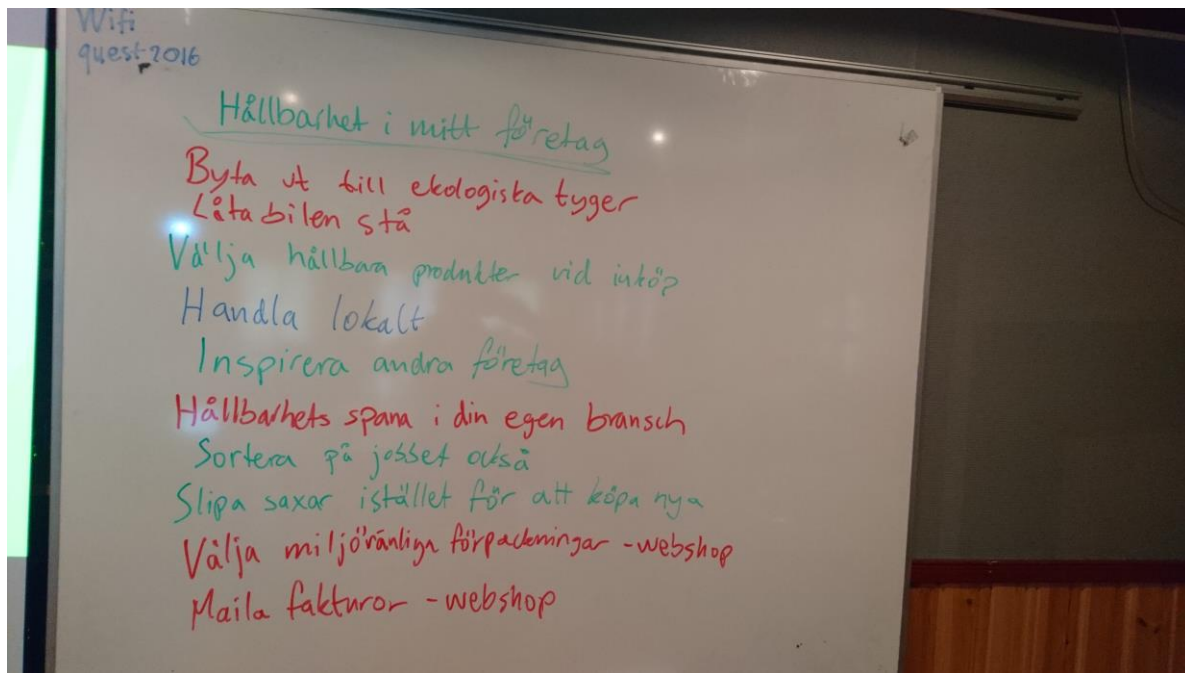 Wifi
guest 2016
Hållbarhet i mitt företag
Byta ut till ekologiska tyger
Låta bilen stå
Välja hållbara produkter vid inköp
Handla lokalt
Inspirera andra företag
Hållbarhets spana i din egen bransch
Sortera på jobbet också
Slipa saxar istället för att köpa nya
Välja miljövänliga förpackningar - webshop
Maila fakturor - webshop